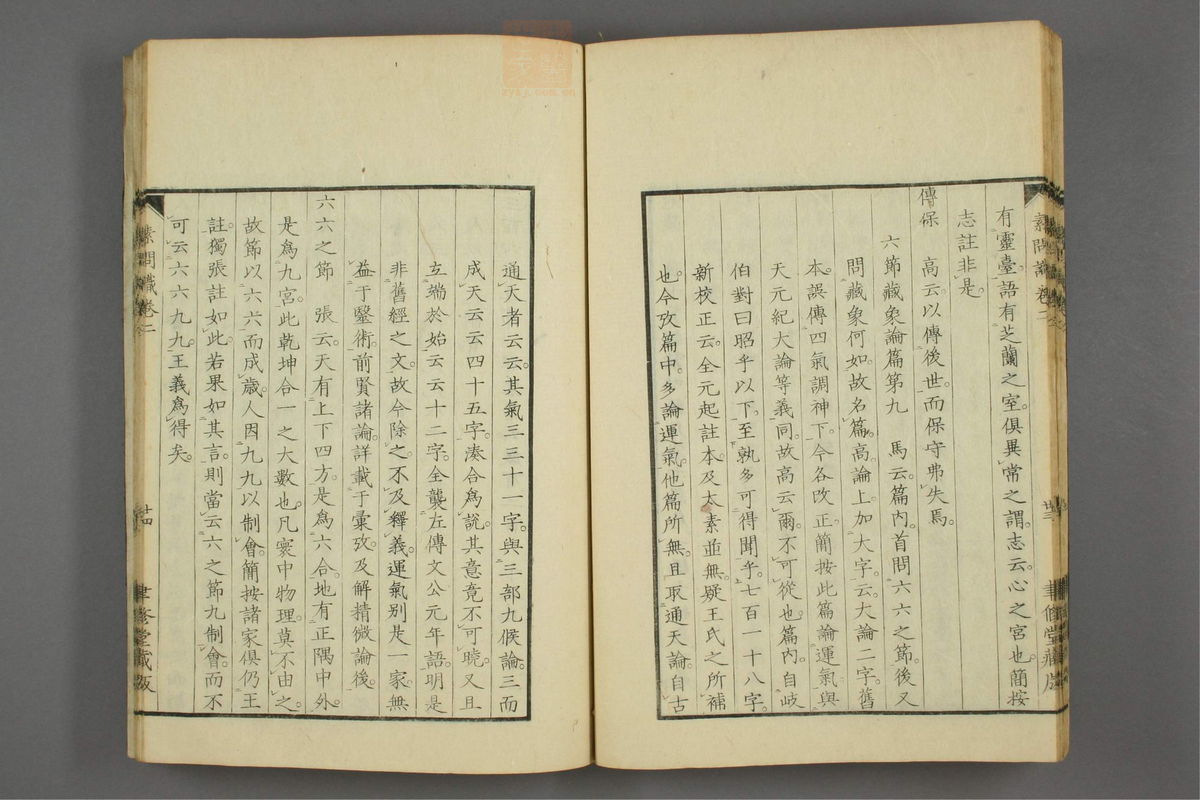 素問識卷二
有靈臺。語有芝蘭之室。俱異常之謂。志云。心之宮也。簡按
志註非是。
傳保 高云。以傳後世。而保守弗失焉。
六節藏象論篇第九 馬云。篇內首問六六之節。後又
問藏象何如。故名篇。高論上。加大字。云。大論二字。舊
本。誤傳四氣調神下。今各改正。簡按此篇論運氣。與
天元紀大論等義同。故高云爾。不可從也。篇內。自岐
伯對曰昭乎以下。至孰多可得聞乎。七百一十八字。
新校正云。全元起註本。及太素並無。疑王氏之所補
也。今攷篇中。多論運氣。他篇所無。且取通天論。自古
廿三
聿修堂藏版
通天者云云。其氣三三十一字。與三部九候論。三而
成天云云四十五字。湊合為說。其意竟不可曉。又且
立端於始云云十二字。全襲左傳文公元年語。明是
非舊經之文。故今除之。不及釋義。運氣別是一家。無
益于醫術。前賢諸論。詳載于彙攷及解精微論後。
六六之節 張云。天有上下四方。是為六合。地有正隅中外。
是為九宮。此乾坤合一之大數也。凡寰中物理。莫不由之。
故節以六六而成歲。人因九九以制會。簡按諸家俱仍王
註。獨張註如此。若果如其言。則當云六之節九制會。而不
可云六六九九。王義為得矣。
素問識卷二
廿四
聿修堂藏版